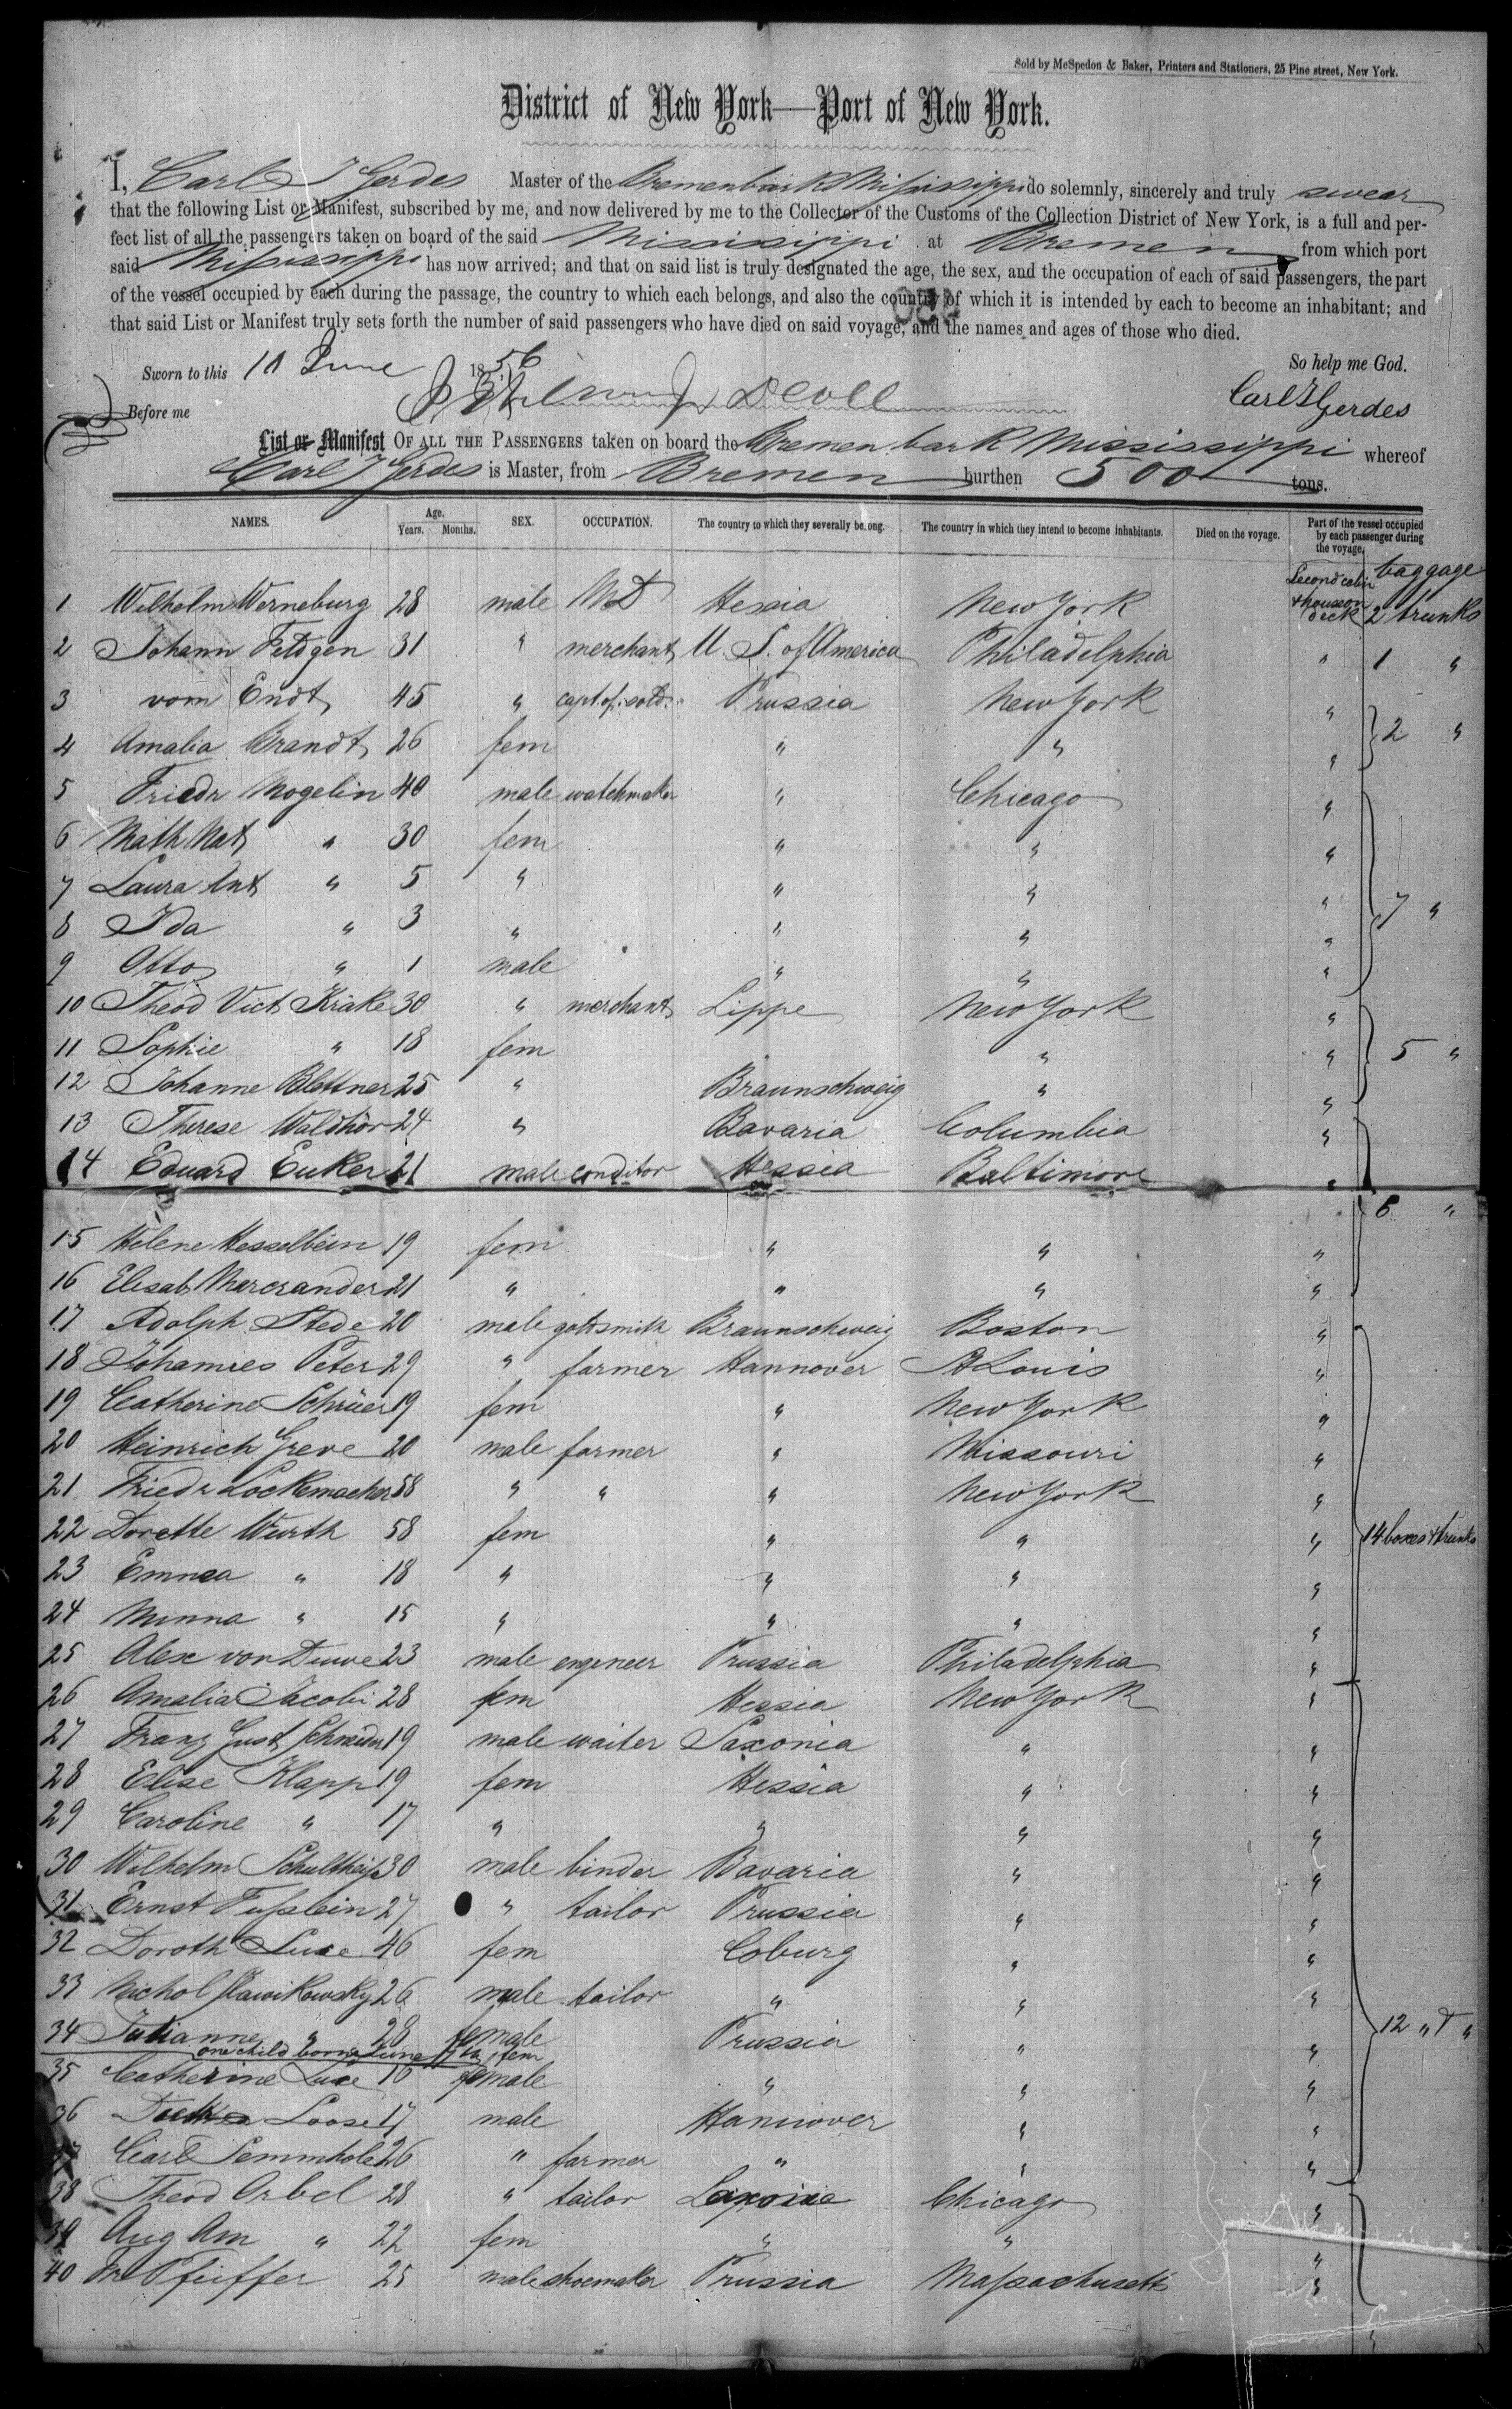 Sold by McSpedon & Baker, Printers and Stationers, 25 Pine street, New York.
District of New York—Port of New York.
I, Carl Gerdes Master of the Bremen bark Mississippi do solemnly, sincerely and truly swear
that the following List or Manifest, subscribed by me, and now delivered by me to the Collector of the Customs of the Collection District of New York, is a full and per-
fect list of all the passengers taken on board of the said Mississippi at Bremen from which port
said Mississippi has now arrived; and that on said list is truly designated the age, the sex, and the occupation of each of said passengers, the part
of the vessel occupied by each during the passage, the country to which each belongs, and also the country of which it is intended by each to become an inhabitant; and
that said List or Manifest truly sets forth the number of said passengers who have died on said voyage, and the names and ages of those who died.
Sworn to this June 1856 So help me God.
Before me Carl Gerdes
List or Manifest OF ALL THE PASSENGERS taken on board the Bremen bark Mississippi whereof
Carl Gerdes is Master, from Bremen burthen 500 tons.
NAMES. Age. Years. Months. SEX. OCCUPATION. The country to which they severally belong. The country in which they intend to become inhabitants. Died on the voyage. Part of the vessel occupied by each passenger during the voyage. baggage
1 Wilhelm Werneburg 28 male MD Hessia New York Second cabin + house on deck 2 trunks
2 Johann Feldgen 31 " merchant U. S. of America Philadelphia " 1 "
3 vom Endt 45 " Prussia New York "
4 Amalia Brandt 26 fem " " " 2 "
5 Friedr Mogelin 40 male watchmaker " Chicago "
6 Math Nat " 30 fem " " "
7 Laura Ant " 5 " " " "
8 Ida " 3 " " " " 7 "
9 Otto " 1 male " " "
10 Theod Vict Krake 30 " merchant Lippe New York "
11 Sophie " 18 fem " " 5 "
12 Johanne Blettner 25 " Braunschweig " "
13 Therese Waldhör 24 " Bavaria Columbia "
14 Eduard Euker 21 male conditor Hessia Baltimore "
6 "
15 Helene Hesselbein 19 fem " " "
16 Elisab Marcrander 21 " " " "
17 Adolph Stede 20 male goldsmith Braunschweig Boston "
18 Johannes Peter 29 " farmer Hannover St Louis "
19 Catherine Schrüer 19 fem " New York "
20 Heinrich Greve 20 male farmer " Missouri "
21 Friedr Lockemacher 58 " " " New York "
22 Dorette Wurth 58 fem " " " 14 boxes + trunks
23 Emma " 18 " " "
24 Minna " 15 " " " "
25 Alex von Duwe 23 male engeneer Prussia Philadelphia "
26 Amalia Jacobi 28 fem Hessia New York "
27 Franz Gust 19 male waiter Saxonia " "
28 Elise Klapp 19 fem Hessia " "
29 Caroline " 17 " " " "
30 Wilhelm Schultheiss 30 male binder Bavaria " "
31 Ernst Fusslein 27 " tailor Prussia " "
32 Doroth Luxe 46 fem Coburg " "
33 Nichol 26 male tailor " " "
34 Julianne " 28 female Prussia " " 12 " + "
one child born June fem
35 Catherine Luxe 10 female " " "
36 Loose 17 male Hannover " "
37 Carl Semmhole 26 " farmer " " "
38 Theod Orbel 28 " tailor Saxonia Chicago "
39 Aug Am " 22 fem " " "
40 Pfeiffer 25 male shoemaker Prussia Massachusetts "